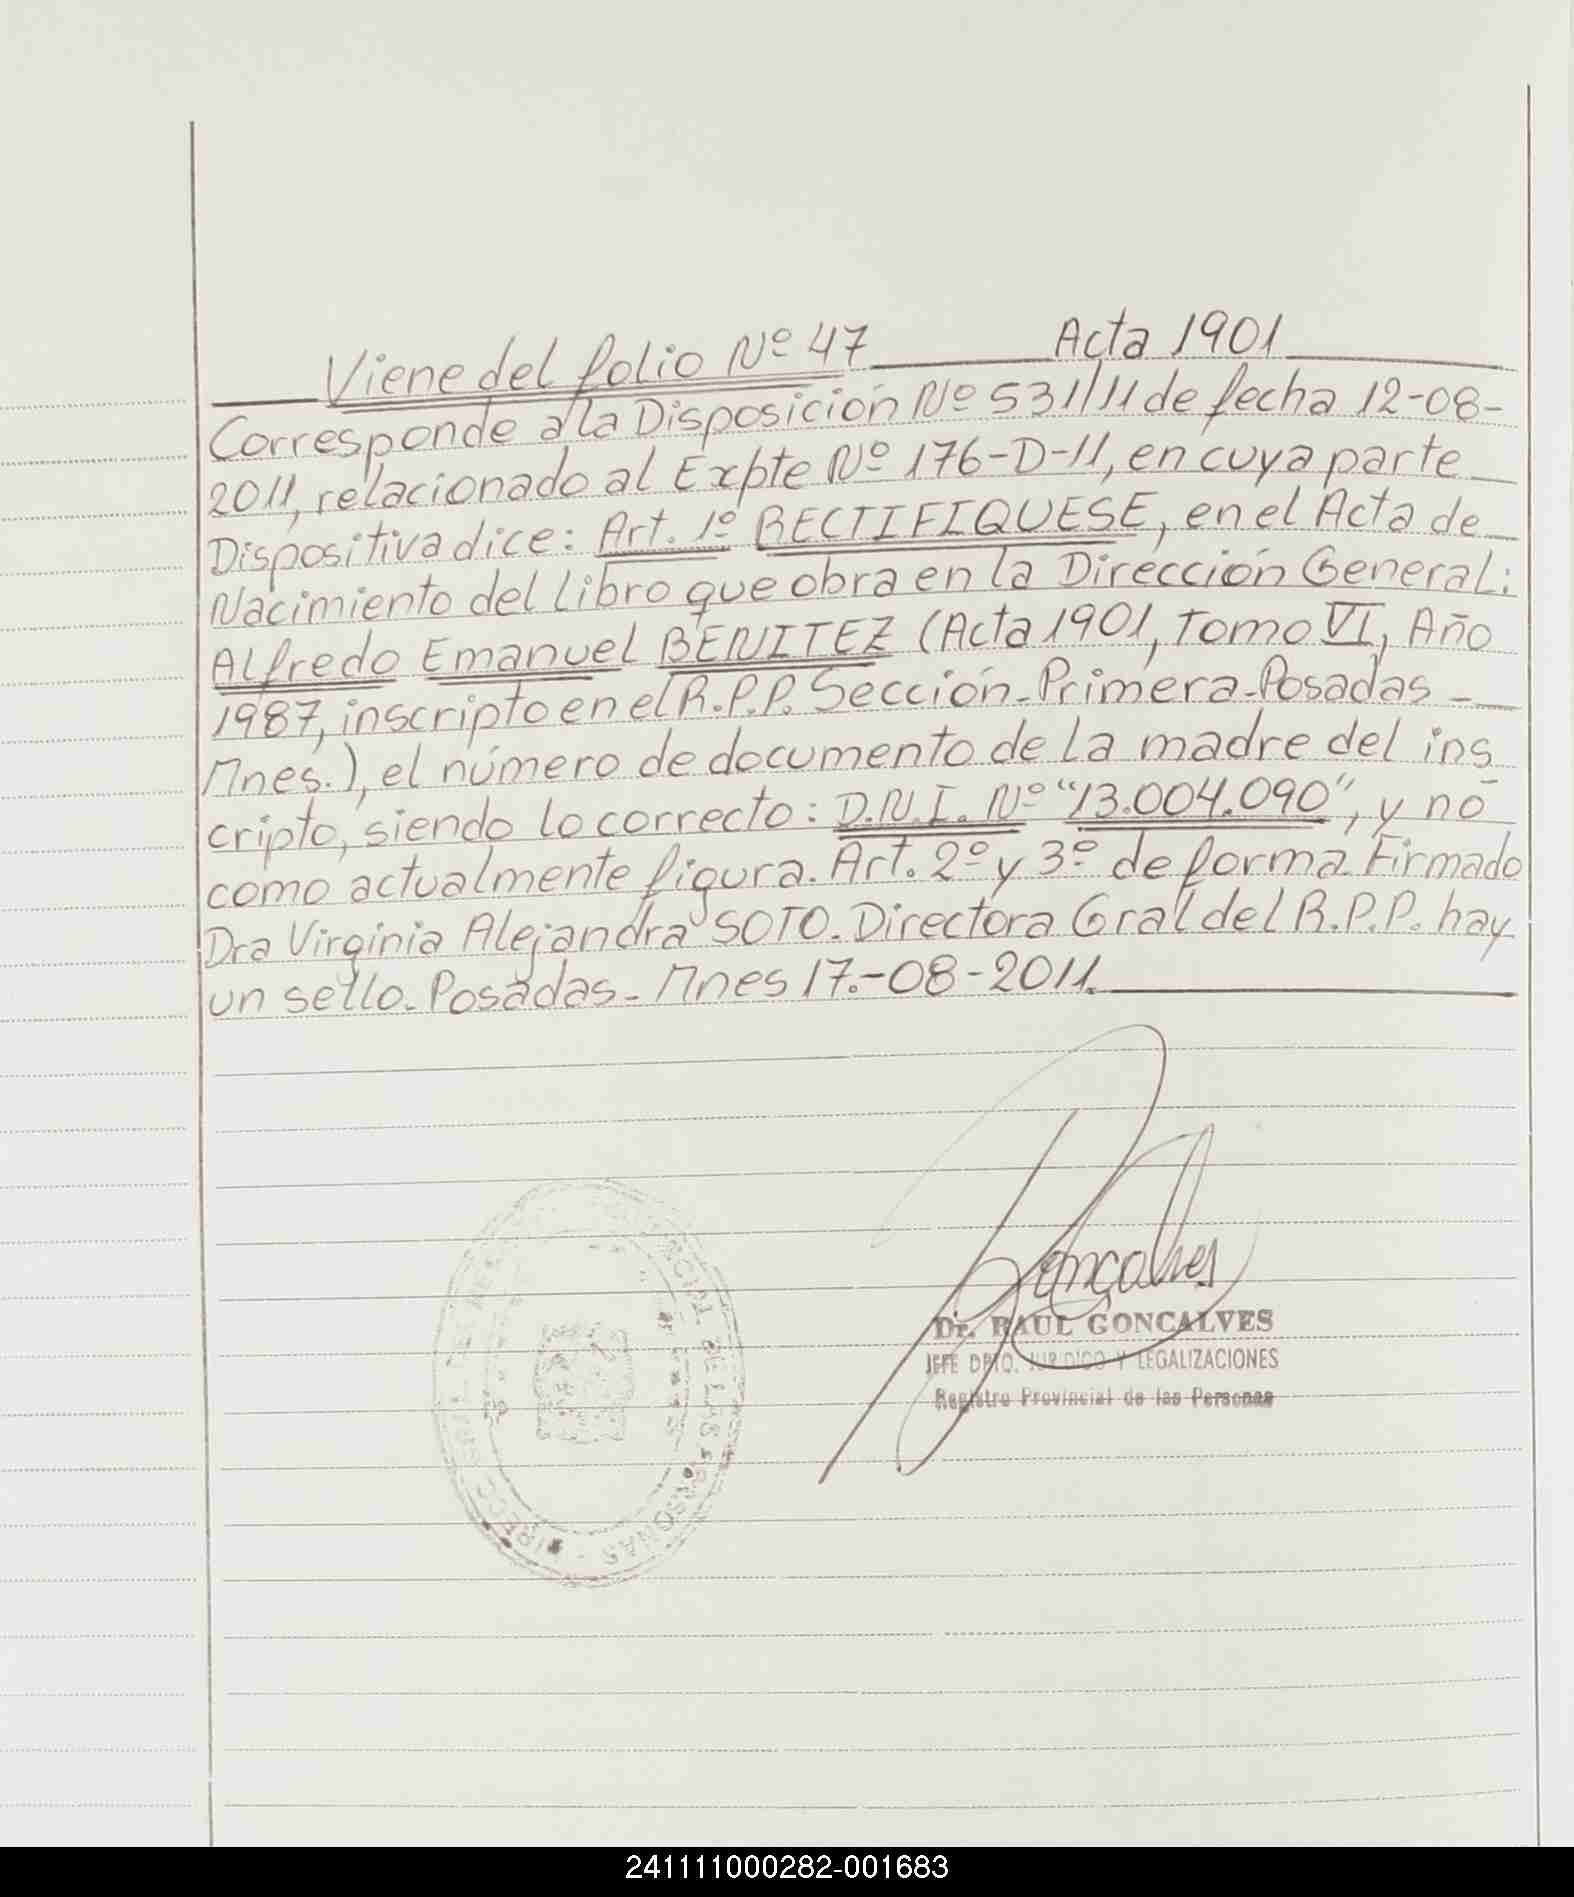 Viene del folio Nº 47 Acta 1901
Corresponde a la Disposición Nº 531/11 de fecha 12-08-
2011, relacionado al Expte Nº 176-D-11, en cuya parte
Dispositiva dice: Art. 1º RECTIFIQUESE, en el Acta de
Nacimiento del libro que obra en la Dirección General:
Alfredo Emanuel BENITEZ (Acta 1901, Tomo VI, Año
1987, inscripto en el R.P.P. Sección-Primera-Posadas-
Mnes.), el número de documento de la madre del ins
cripto, siendo lo correcto: D.N.I. Nº "13.004.090", y no
como actualmente figura. Art. 2º y 3º de forma Firmado
Dra Virginia Alejandra SOTO. Directora Gral del R.P.P. hay
un sello. Posadas- Mnes 17.-08-2011.
Gonçalves
Dr. RAUL GONCALVES
JEFE DPTO. JURIDICO Y LEGALIZACIONES
Registro Provincial de las Personas
DE LAS PERSONAS
241111000282-001683